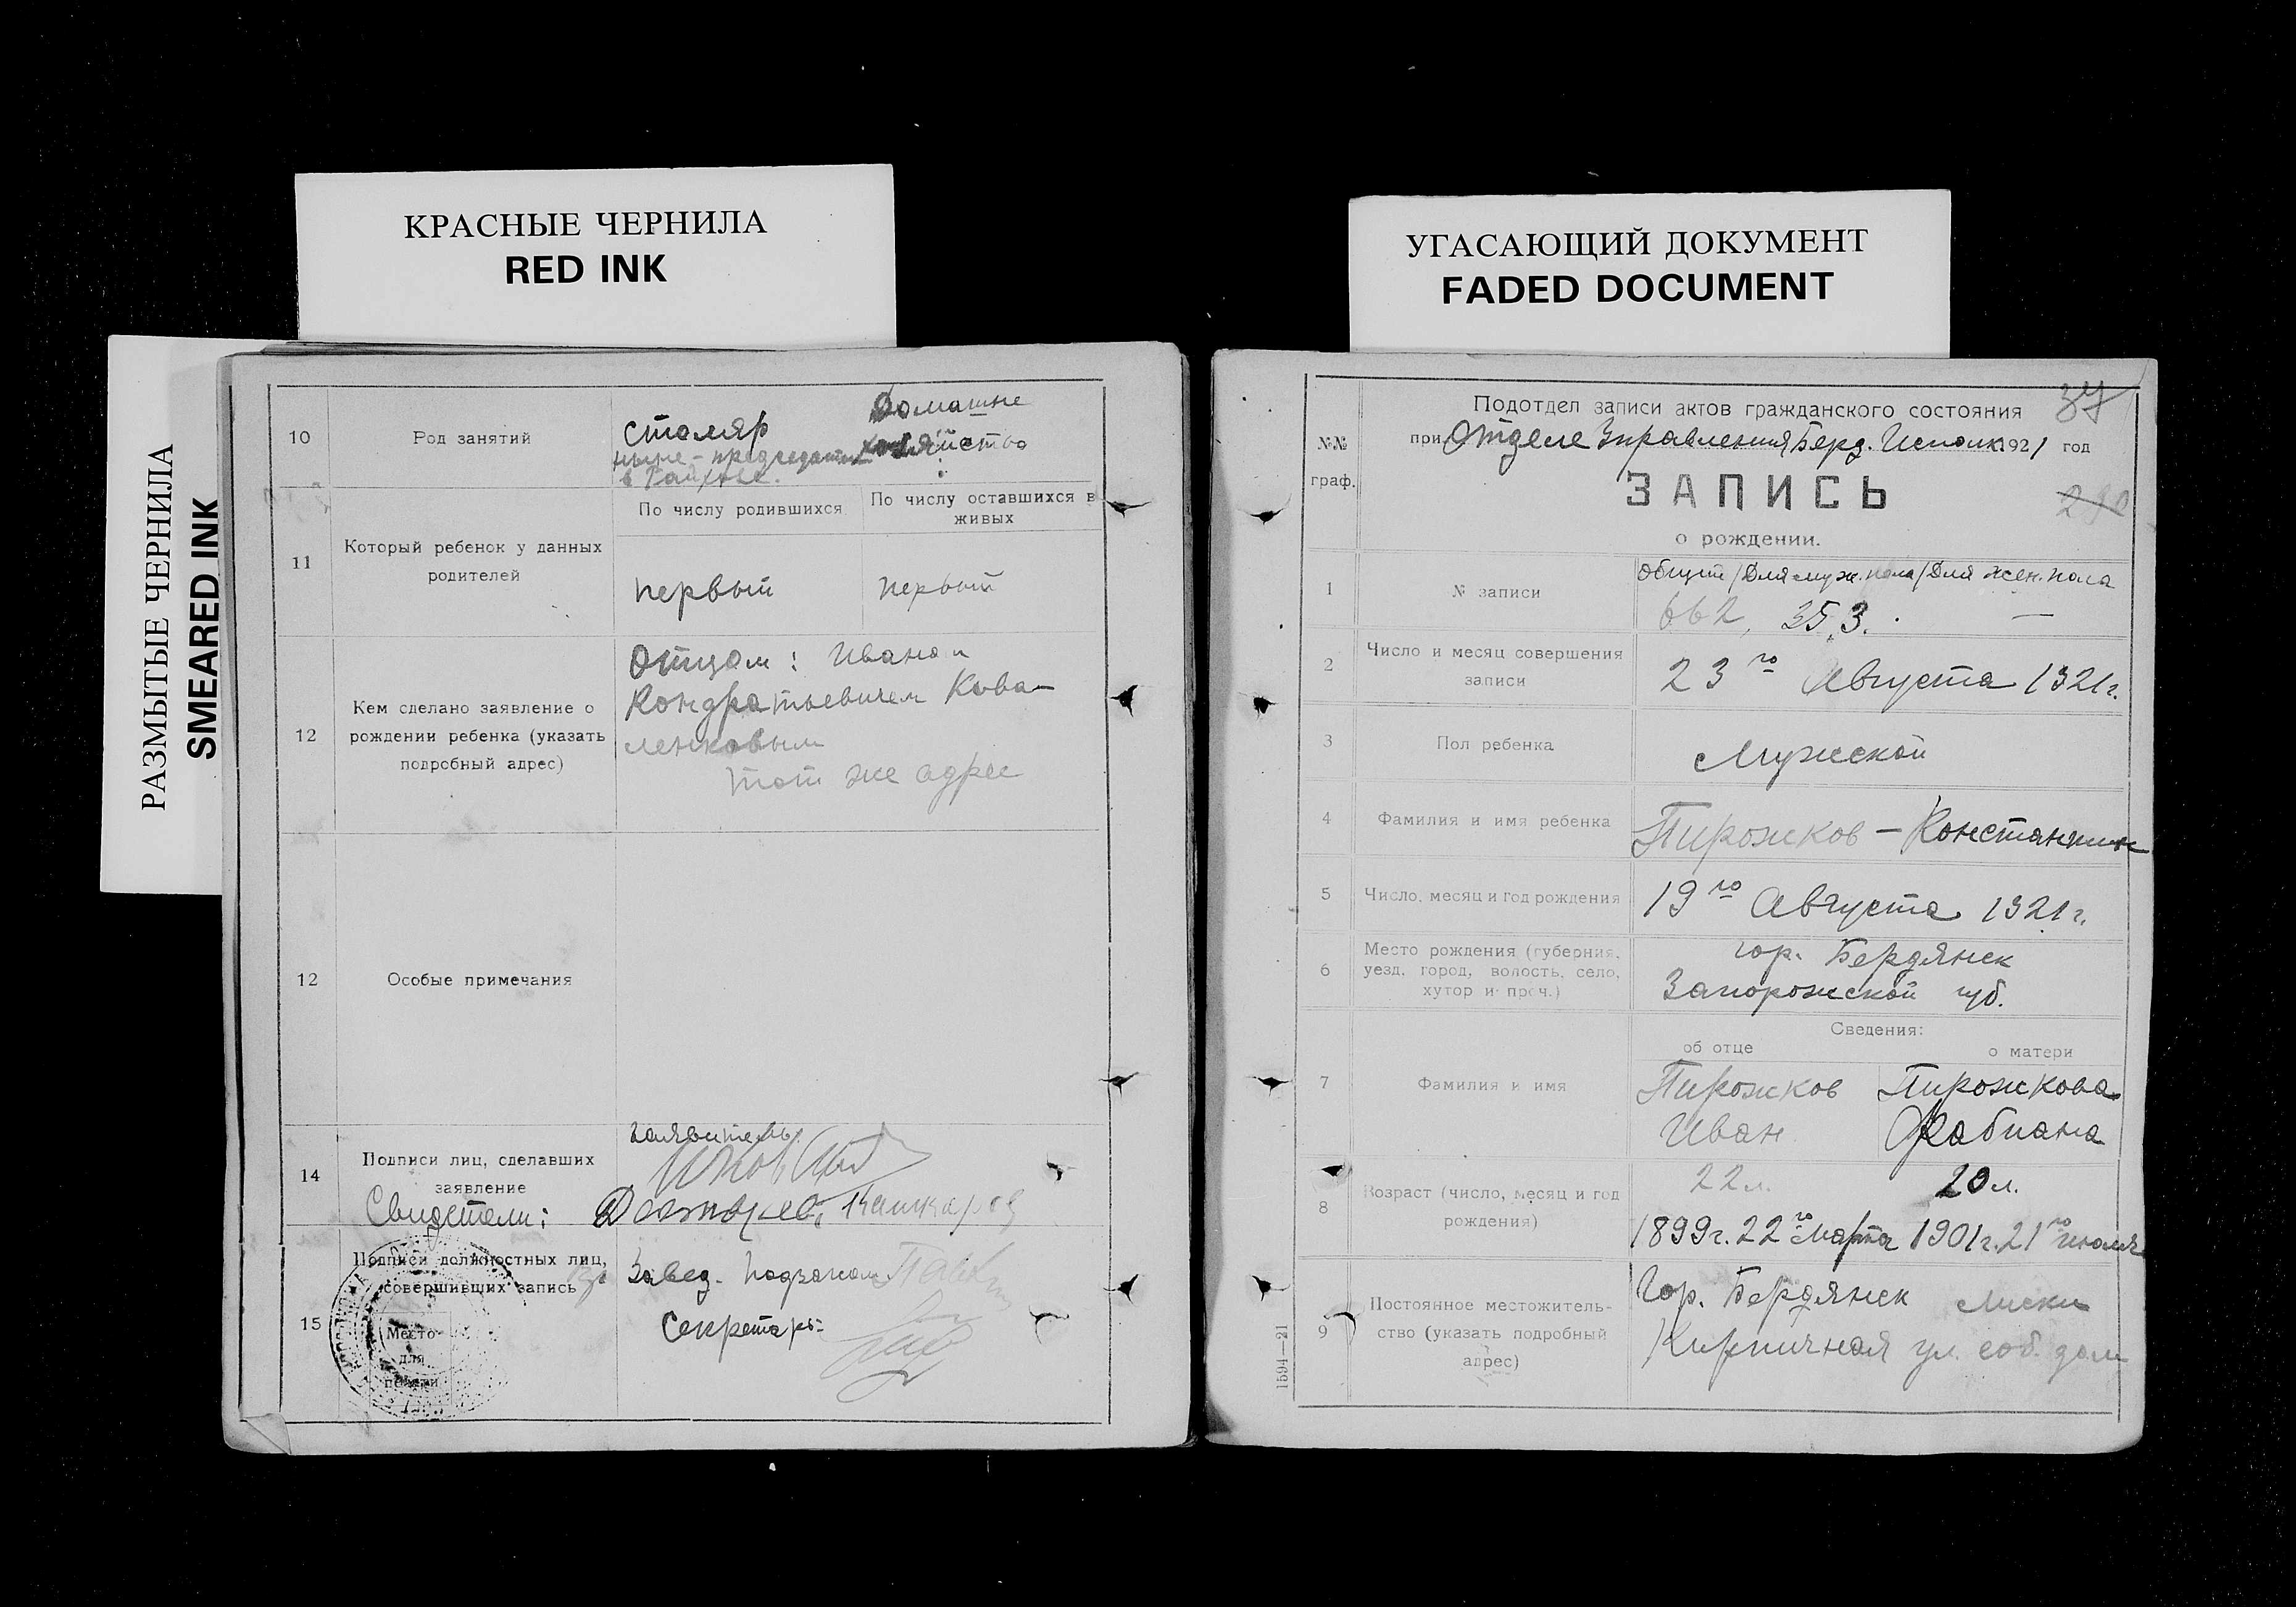 КРАСНЫЕ ЧЕРНИЛА
RED INK
РАЗМЫТЫЕ ЧЕРНИЛА
SMEARED INK
10
Род занятий
столяр
ныне - председатель
в
Домашне
хозяйство
11
Который ребенок у данных
родителей
По числу родившихся
По числу оставшихся в
живых
первый
первый
12
Кем сделано заявление о
рождении ребенка (указать
подробный адрес)
Отцом: Иваном
Кондратьевичем Кова-
ленковым
тот же адрес
12
Особые примечания
14
Подписи лиц, сделавших
заявление
заявитель
Свидетели:
15
Подписи должностных лиц,
совершивших запись
Место
для
печати
Завед. Подзагсом
Секретарь
УГАСАЮЩИЙ ДОКУМЕНТ
FADED DOCUMENT
37
Подотдел записи актов гражданского состояния
при Отделе Управления Берд. Исполк. 1921 год
№№
граф.
ЗАПИСЬ
290
о рождении.
1
№ записи
общий / Для муж. пола / Для жен. пола
662, 353. —
2
Число и месяц совершения
записи
23го Августа 1921 г.
3
Пол ребенка
Мужской
4
Фамилия и имя ребенка
Пирожков - Константин
5
Число, месяц и год рождения
19го Августа 1921 г.
6
Место рождения (губерния,
уезд, город, волость, село,
хутор и проч.)
гор. Бердянск
Запорожской губ.
Сведения:
об отце
о матери
7
Фамилия и имя
Пирожков
Иван
Пирожкова
Фабиана
8
Возраст (число, месяц и год
рождения)
22 л.
20 л.
1899 г. 22го Марта
1901 г. 21го июля
9
Постоянное местожитель-
ство (указать подробный
адрес)
Гор. Бердянск Лиски
Кирпичная ул. соб. дом
1594—21